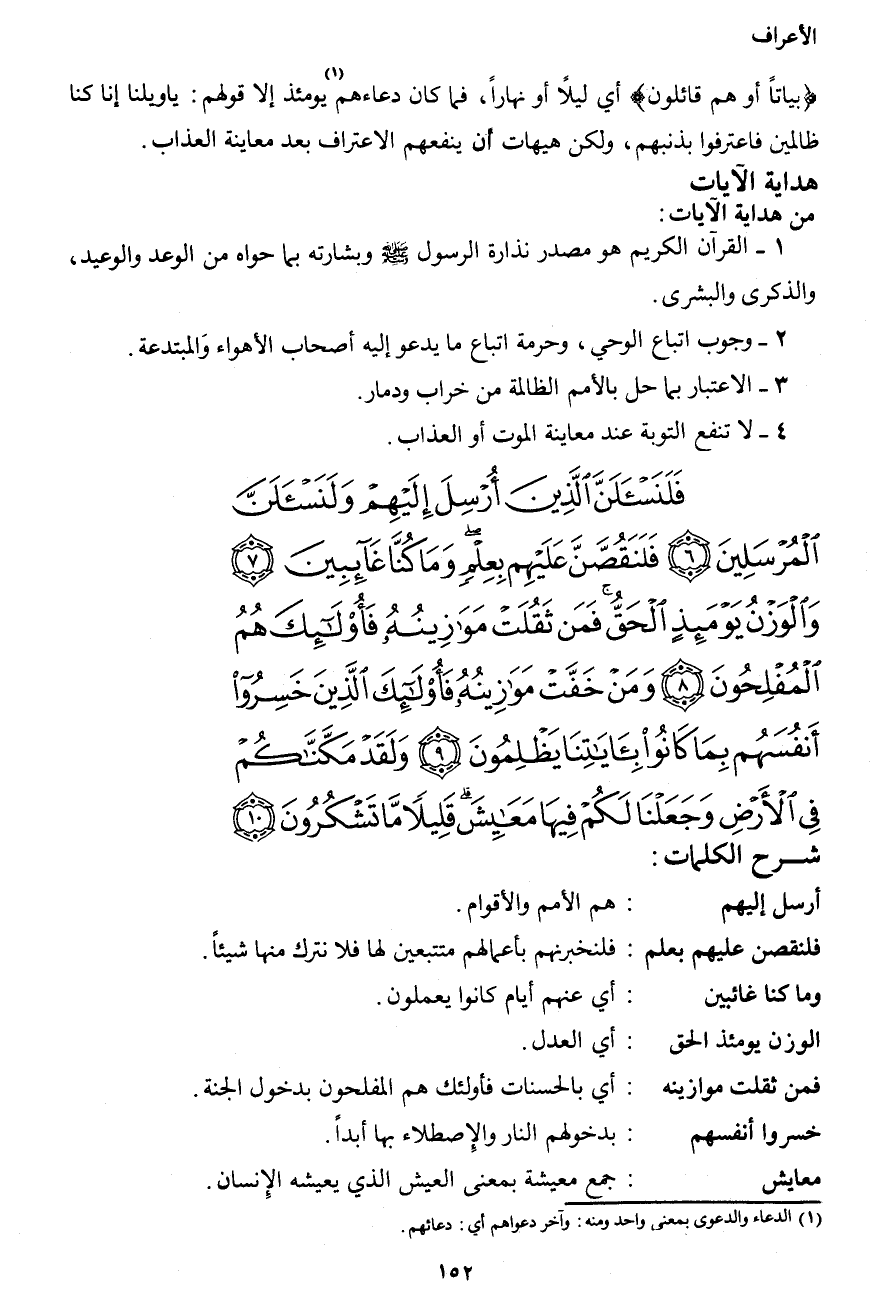 الأعراف
﴿بياتاً أو هم قائلون﴾ أي ليلًا أو نهاراً، فما كان دعاءهم(١) يومئذ إلا قولهم: ياويلنا إنا كنا
ظالمين فاعترفوا بذنبهم، ولكن هيهات أن ينفعهم الاعتراف بعد معاينة العذاب.
هداية الآيات
من هداية الآيات:
١ - القرآن الكريم هو مصدر نذارة الرسول ﷺ وبشارته بما حواه من الوعد والوعيد،
والذكرى والبشرى.
٢ - وجوب اتباع الوحي، وحرمة اتباع ما يدعو إليه أصحاب الأهواء وَالمبتدعة.
٣ - الاعتبار بما حل بالأمم الظالمة من خراب ودمار.
٤ - لا تنفع التوبة عند معاينة الموت أو العذاب.
فَلَنَسْـَٔلَنَّ ٱلَّذِينَ أُرْسِلَ إِلَيْهِمْ وَلَنَسْـَٔلَنَّ
ٱلْمُرْسَلِينَ ﴿٦﴾ فَلَنَقُصَّنَّ عَلَيْهِم بِعِلْمٍ ۖ وَمَا كُنَّا غَآئِبِينَ ﴿٧﴾
وَٱلْوَزْنُ يَوْمَئِذٍ ٱلْحَقُّ ۚ فَمَن ثَقُلَتْ مَوَٰزِينُهُۥ فَأُو۟لَـٰٓئِكَ هُمُ
ٱلْمُفْلِحُونَ ﴿٨﴾ وَمَنْ خَفَّتْ مَوَٰزِينُهُۥ فَأُو۟لَـٰٓئِكَ ٱلَّذِينَ خَسِرُوٓا۟
أَنفُسَهُم بِمَا كَانُوا۟ بِـَٔايَـٰتِنَا يَظْلِمُونَ ﴿٩﴾ وَلَقَدْ مَكَّنَّـٰكُمْ
فِى ٱلْأَرْضِ وَجَعَلْنَا لَكُمْ فِيهَا مَعَـٰيِشَ ۗ قَلِيلًا مَّا تَشْكُرُونَ ﴿١٠﴾
شـرح الكلمات:
أرسل إليهم : هم الأمم والأقوام.
فلنقصن عليهم بعلم : فلنخبرنهم بأعمالهم متتبعين لها فلا نترك منها شيئاً.
وما كنا غائبين : أي عنهم أيام كانوا يعملون.
الوزن يومئذ الحق : أي العدل.
فمن ثقلت موازينه : أي بالحسنات فأولئك هم المفلحون بدخول الجنة.
خسروا أنفسهم : بدخولهم النار والإصطلاء بها أبداً.
معايش : جمع معيشة بمعنى العيش الذي يعيشه الإنسان.
(١) الدعاء والدعوى بمعنى واحد ومنه: وآخر دعواهم أي: دعائهم.
١٥٢